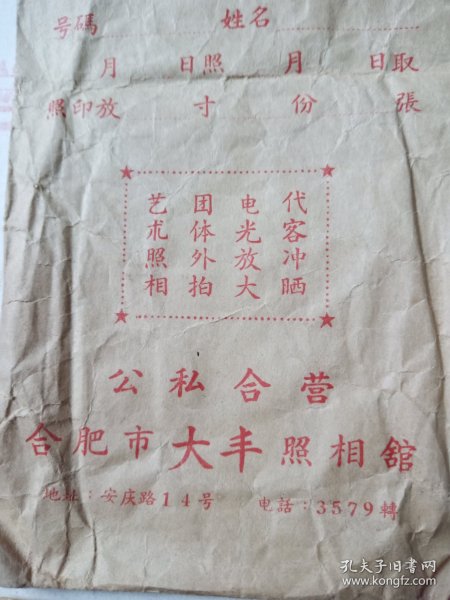 号碼 姓名
月 日照 月 日取
照印放 寸 份 張
代客冲晒
电光放大
团体外拍
艺术照相
公私合营
合肥市大丰照相舘
地址:安庆路14号 电話:3579轉
孔夫子旧书网
www.kongfz.com